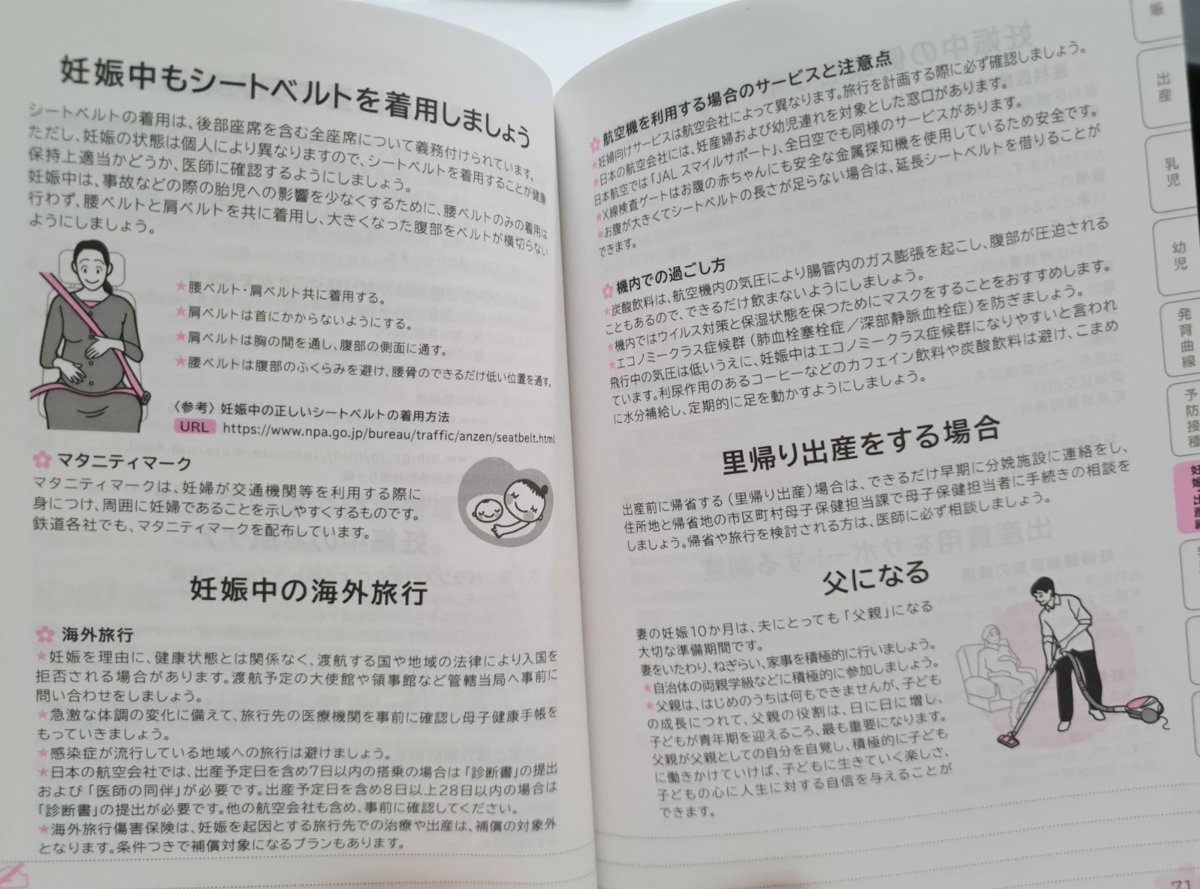 妊娠中もシートベルトを着用しましょう
シートベルトの着用は、後部座席を含む全座席について義務付けられています。
ただし、妊娠の状態は個人により異なりますので、シートベルトを着用することが健康
保持上適当かどうか、医師に確認するようにしましょう。
妊娠中は、事故などの際の胎児への影響を少なくするために、腰ベルトのみの着用は
行わず、腰ベルトと肩ベルトを共に着用し、大きくなった腹部をベルトが横切らない
ようにしましょう。
★腰ベルト・肩ベルト共に着用する。
★肩ベルトは首にかからないようにする。
★肩ベルトは胸の間を通し、腹部の側面に通す。
★腰ベルトは腹部のふくらみを避け、腰骨のできるだけ低い位置を通す。
〈参考〉妊娠中の正しいシートベルトの着用方法
URL https://www.npa.go.jp/bureau/traffic/anzen/seatbelt.html
マタニティマーク
マタニティマークは、妊婦が交通機関等を利用する際に
身につけ、周囲に妊婦であることを示しやすくするものです。
鉄道各社でも、マタニティマークを配布しています。
妊娠中の海外旅行
海外旅行
★妊娠を理由に、健康状態とは関係なく、渡航する国や地域の法律により入国を
拒否される場合があります。渡航予定の大使館や領事館など管轄当局へ事前に
問い合わせをしましょう。
★急激な体調の変化に備えて、旅行先の医療機関を事前に確認し母子健康手帳を
もっていきましょう。
★感染症が流行している地域への旅行は避けましょう。
★日本の航空会社では、出産予定日を含め7日以内の搭乗の場合は「診断書」の提出
および「医師の同伴」が必要です。出産予定日を含め8日以上28日以内の場合は
「診断書」の提出が必要です。他の航空会社も含め、事前に確認してください。
★海外旅行傷害保険は、妊娠を起因とする旅行先での治療や出産は、補償の対象外
となります。条件つきで補償対象になるプランもあります。
航空機を利用する場合のサービスと注意点
★妊婦向けサービスは航空会社によって異なります。旅行を計画する際に必ず確認しましょう。
★日本の航空会社には、妊産婦および幼児連れを対象とした窓口があります。
日本航空では「JAL スマイルサポート」、全日空でも同様のサービスがあります。
★X線検査ゲートはお腹の赤ちゃんにも安全な金属探知機を使用しているため安全です。
★お腹が大きくてシートベルトの長さが足らない場合は、延長シートベルトを借りることが
できます。
機内での過ごし方
★炭酸飲料は、航空機内の気圧により腸管内のガス膨張を起こし、腹部が圧迫される
こともあるので、できるだけ飲まないようにしましょう。
★機内ではウイルス対策と保湿状態を保つためにマスクをすることをおすすめします。
★エコノミークラス症候群（肺血栓塞栓症／深部静脈血栓症）を防ぎましょう。
飛行中の気圧は低いうえに、妊娠中はエコノミークラス症候群になりやすいと言われ
ています。利尿作用のあるコーヒーなどのカフェイン飲料や炭酸飲料は避け、こまめ
に水分補給し、定期的に足を動かすようにしましょう。
里帰り出産をする場合
出産前に帰省する（里帰り出産）場合は、できるだけ早期に分娩施設に連絡をし、
住所地と帰省地の市区町村母子保健担当課で母子保健担当者に手続きの相談を
しましょう。帰省や旅行を検討される方は、医師に必ず相談しましょう。
父になる
妻の妊娠10か月は、夫にとっても「父親」になる
大切な準備期間です。
妻をいたわり、ねぎらい、家事を積極的に行いましょう。
★自治体の両親学級などに積極的に参加しましょう。
★父親は、はじめのうちは何もできませんが、子ども
の成長につれて、父親の役割は、日に日に増し、
子どもが青年期を迎えるころ、最も重要になります。
父親が父親としての自分を自覚し、積極的に子ども
に働きかけていけば、子どもに生きていく楽しさ、
子どもの心に人生に対する自信を与えることが
できます。
出産
乳児
幼児
発育曲線
予防接種
71